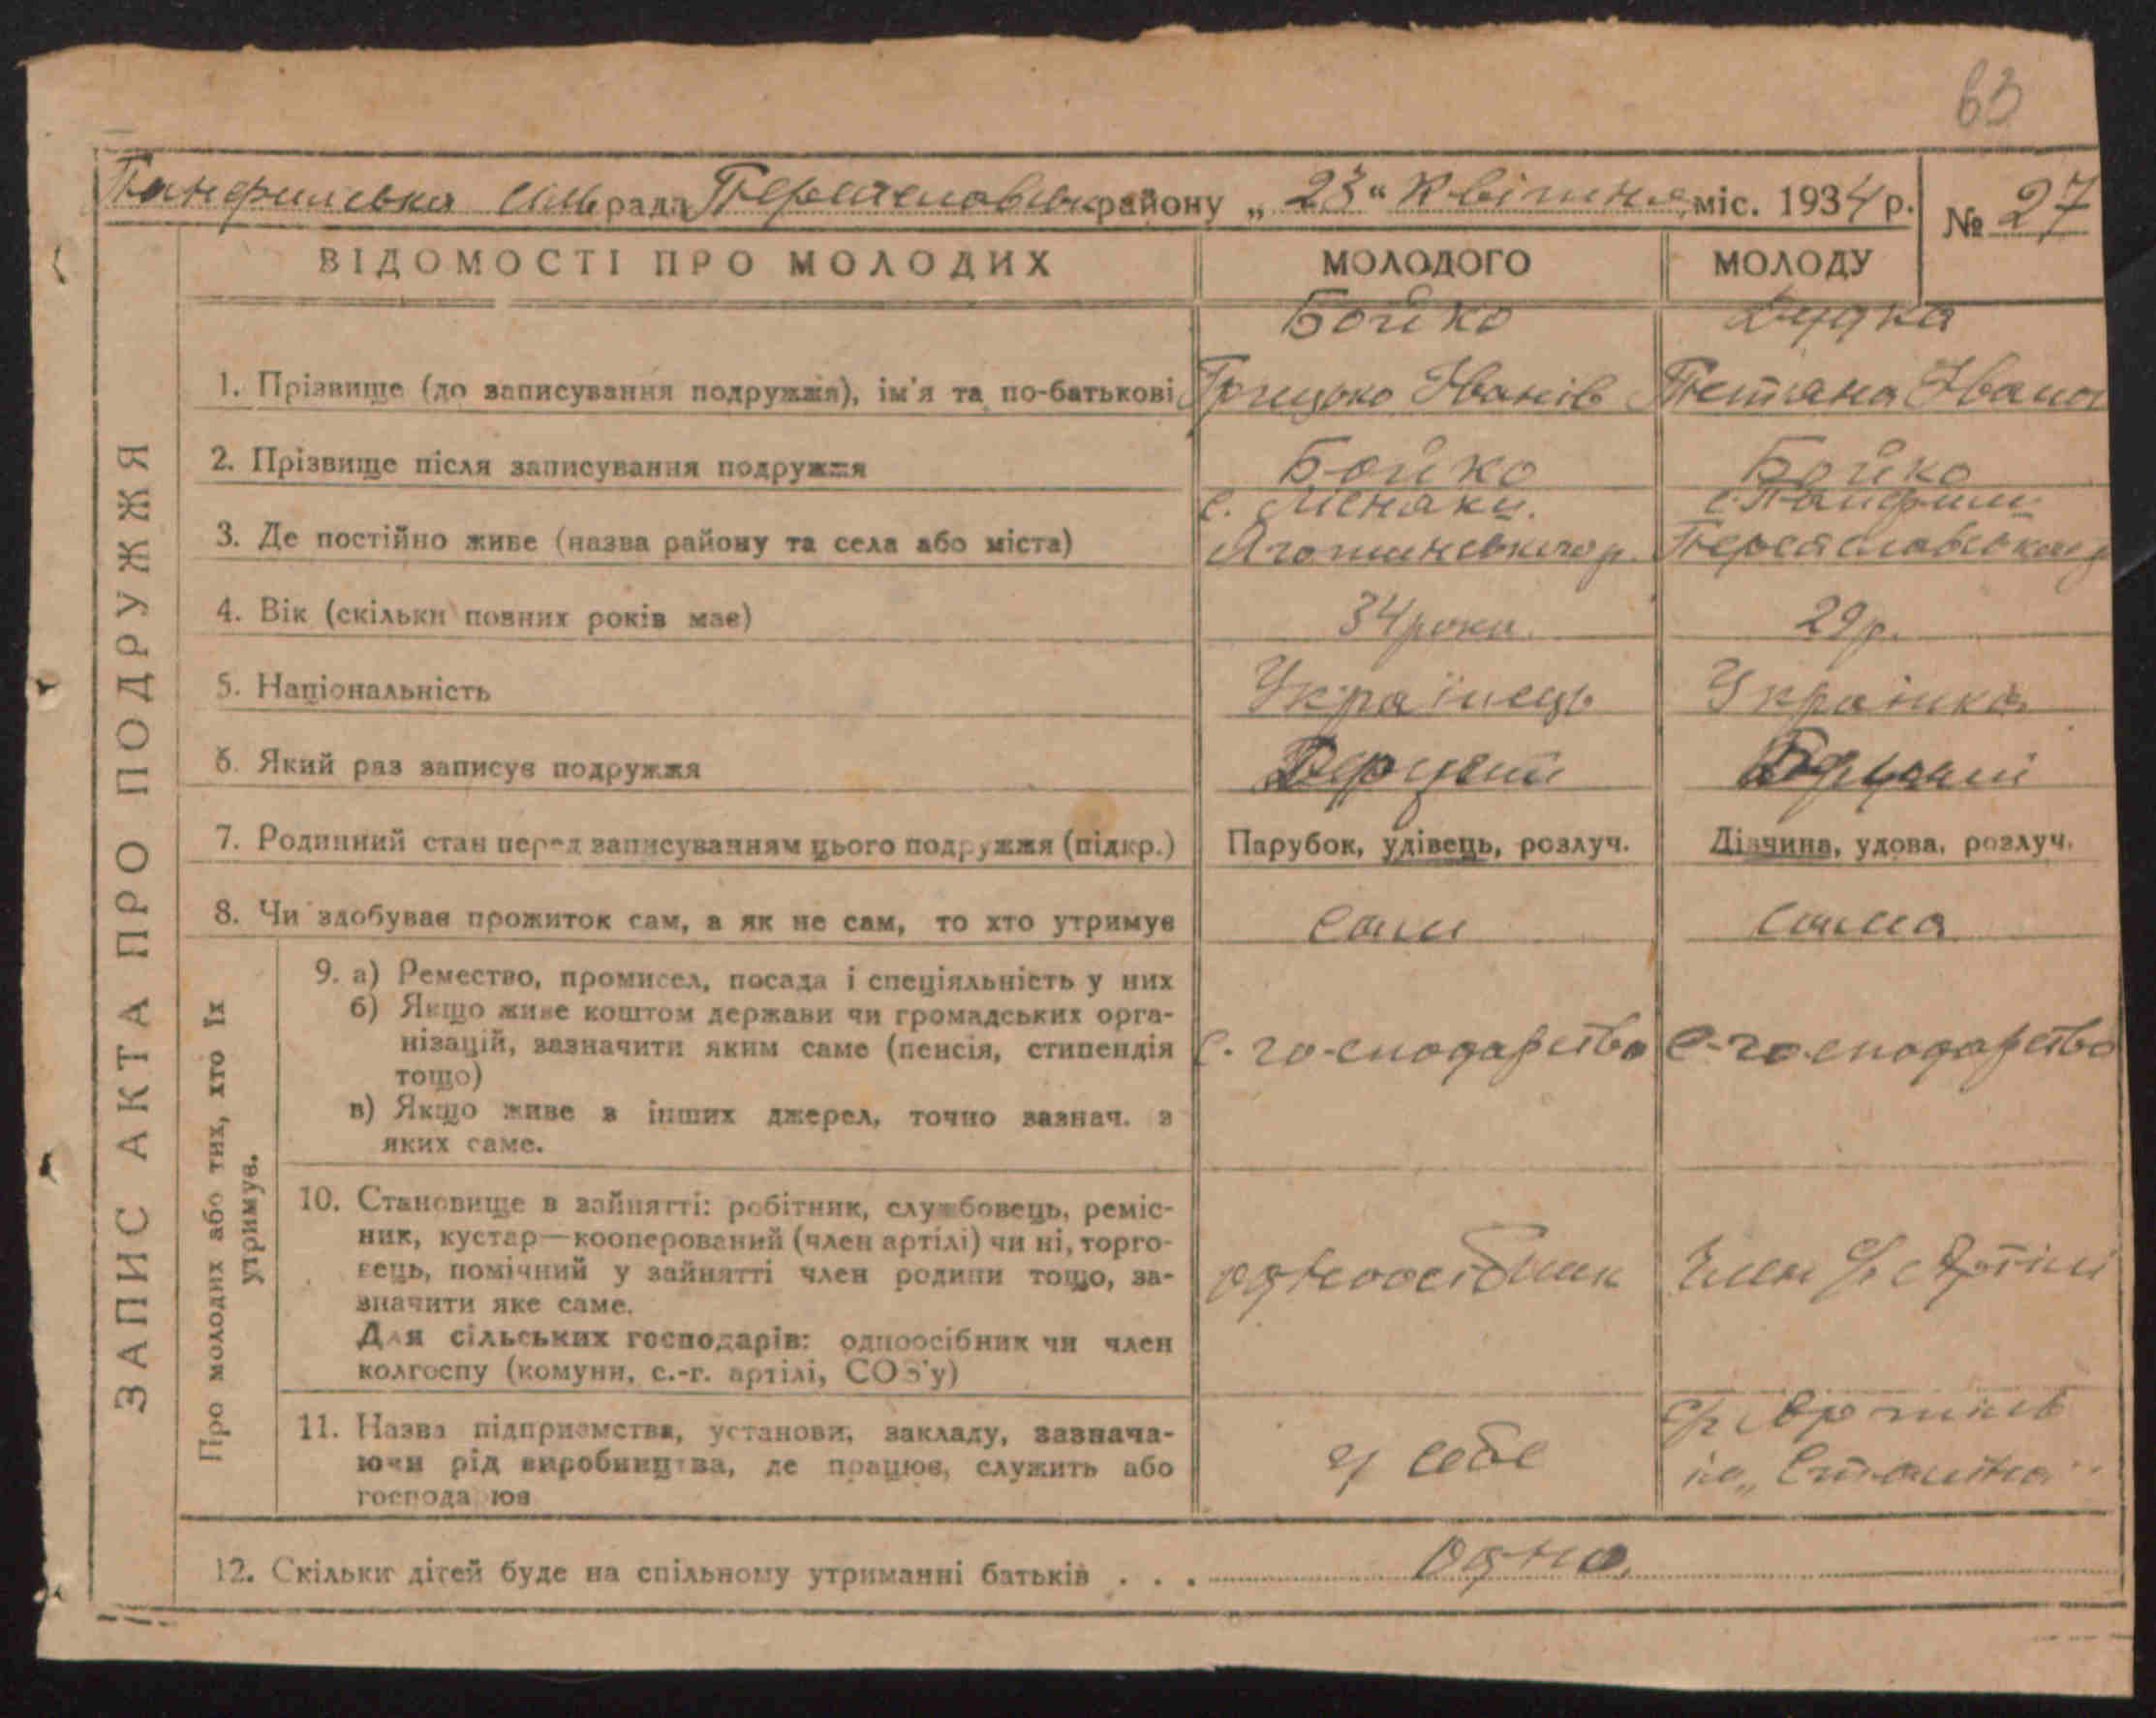 63
Панфилівка сільрада Переяславськ району „23“ Квітня міс. 1934 р. № 27
ЗАПИС АКТА ПРО ПОДРУЖЖЯ
ВІДОМОСТІ ПРО МОЛОДИХ МОЛОДОГО МОЛОДУ
Бойко Дудка
1. Прізвище (до записування подружжя), ім'я та по-батькові Грицько Іванів Тетяна Іванов
2. Прізвище після записування подружжя Бойко Бойко
с. Панфили
3. Де постійно живе (назва району та села або міста) Яготинського р. Переяславського р
4. Вік (скільки повних років має) 34 роки 29 р.
5. Національність Українець Українка
6. Який раз записує подружжя
7. Родинний стан перед записуванням цього подружжя (підкр.) Парубок, удівець, розлуч. Дівчина, удова, розлуч.
8. Чи здобуває прожиток сам, а як не сам, то хто утримує Сам Сама
Про молодих або тих, хто їх
утримує.
9. а) Ремество, промисел, посада і спеціяльність у них
б) Якщо живе коштом держави чи громадських орга-
нізацій, зазначити яким саме (пенсія, стипендія с. го-сподарство с-го-сподарство
тощо)
в) Якщо живе з інших джерел, точно зазнач. з
яких саме.
10. Становище в зайнятті: робітник, службовець, реміс-
ник, кустар—кооперований (член артілі) чи ні, торго-
вець, помічний у зайнятті член родини тощо, за- одноосібник Член с/г Артілі
значити яке саме.
Для сільських господарів: одноосібник чи член
колгоспу (комуни, с.-г. артілі, СОЗ'у)
11. Назва підприємства, установи, закладу, зазнача- с/г Артиль
ючи рід виробництва, де працює, служить або у себе ім „Сталіна“
господарює
12. Скільки дітей буде на спільному утриманні батьків . . . Одно.